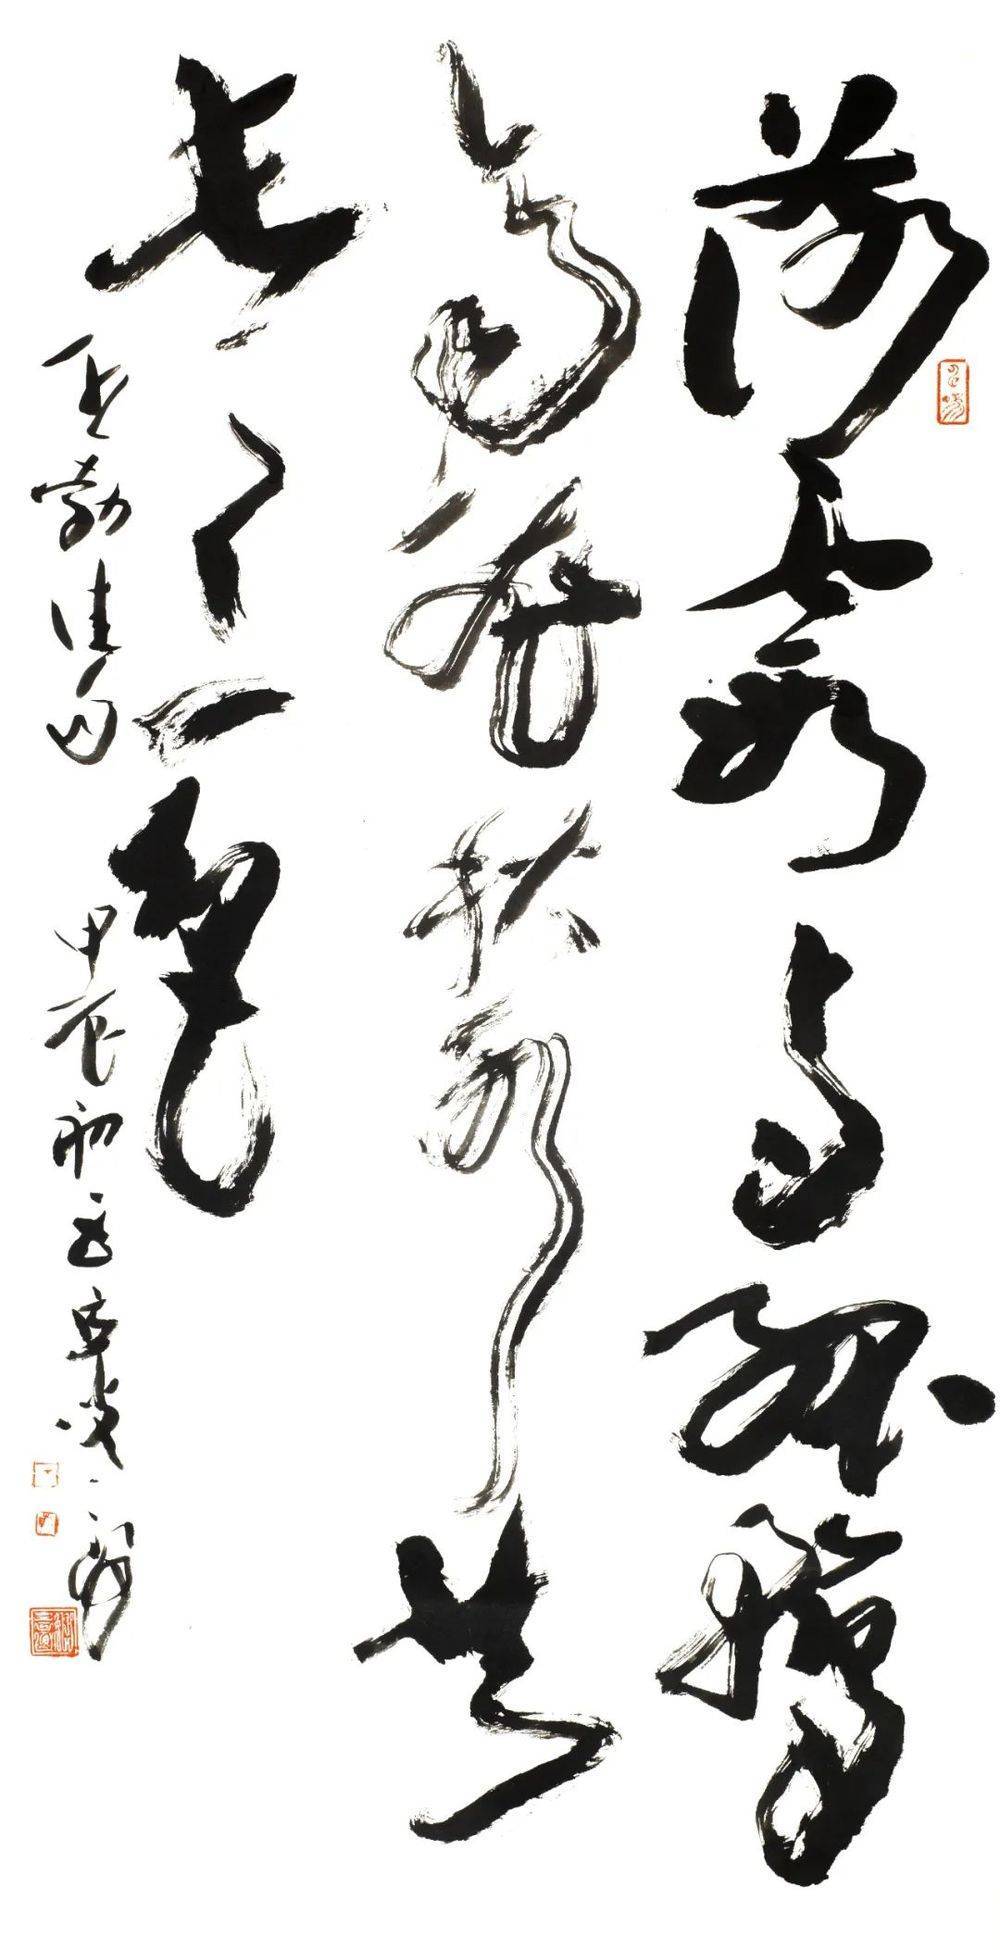 落霞与孤鹜
齊飛秋水共
長天一色
王勃佳句 甲辰初